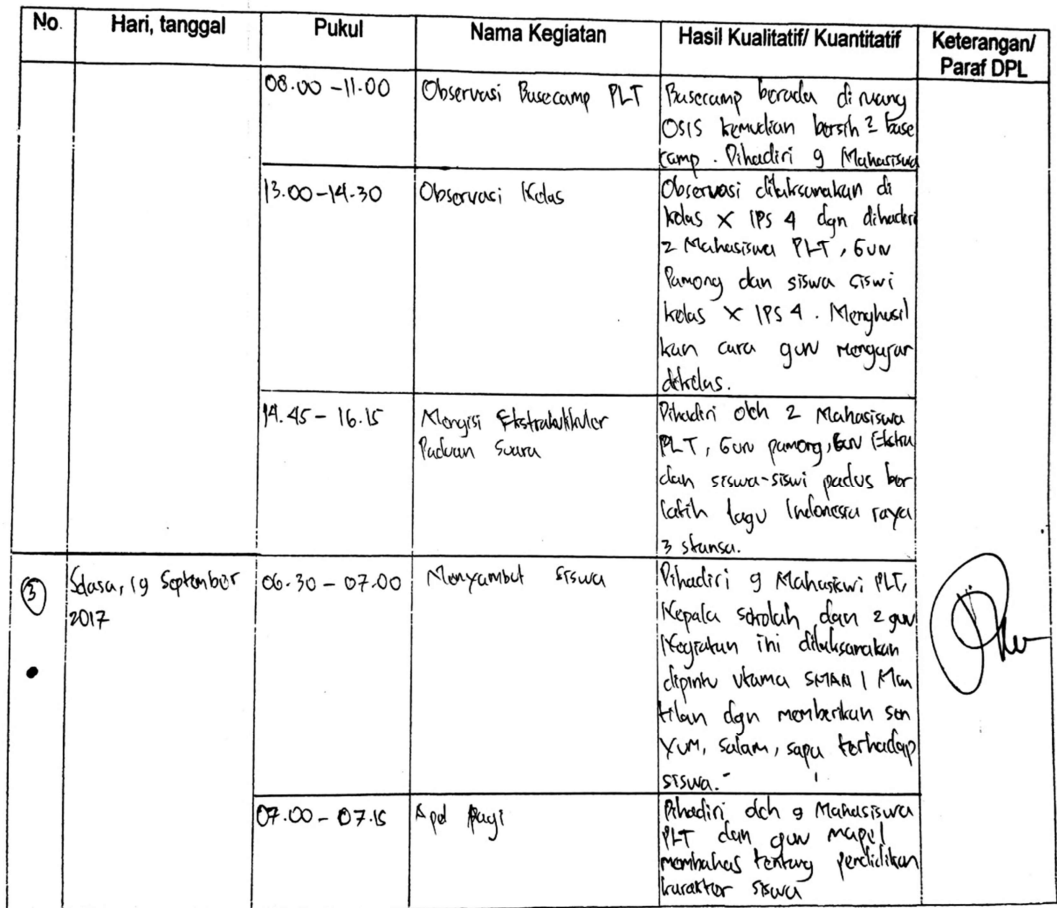 No. Hari, tanggal Pukul Nama Kegiatan Hasil Kualitatif/ Kuantitatif Keterangan/
Paraf DPL
08.00 - 11.00 Observasi Basecamp PLT Basecamp berada di ruang
OSIS kemudian bersih 2 base
camp. Dihadiri 9 Mahasiswa
13.00 - 14.30 Observasi Kelas Observasi dilaksanakan di
kelas X IPS 4 dgn dihadiri
2 Mahasiswa PLT, Guru
Pamong dan siswa siswi
kelas X IPS 4. Menghasil
kan cara guru mengajar
dikelas.
14.45 - 16.15 Mengisi Ekstrakulikuler Dihadiri oleh 2 Mahasiswa
Paduan Suara PLT, Guru pamong, Guru Ekstra
dan siswa-siswi padus ber
latih lagu Indonesia raya
3 stansa.
3 Selasa, 19 September 06.30 - 07.00 Menyambut siswa Dihadiri 9 Mahasiswi PLT,
2017 Kepala sekolah dan 2 guru
Kegiatan ini dilaksanakan
dipintu utama SMAN 1 Mun
tilan dgn memberikan sen
yum, salam, sapa terhadap
siswa.
07.00 - 07.15 Apel Pagi Dihadiri oleh 9 Mahasiswa
PLT dan guru mapel
membahas tentang pendidikan
karakter siswa